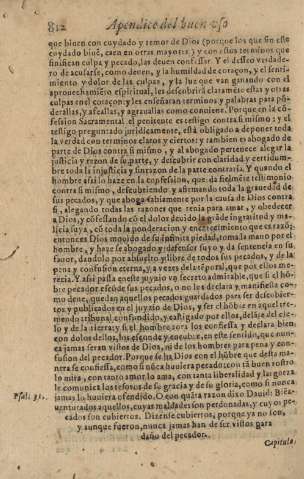 812 Apendice del buen vso
que biuen con cuydado y temor de Dios (porque los que sin este
cuydado biuē, caen en otras mayores) y con estos terminos que
sinifican culpa y pecado, las deuen confessar. Y el desseo verdade-
ro de acusarse, como deuen, y la humildad de coraçon, y el senti-
miento y dolor de las culpas, y la luz que van ganando con el
aprouechamiēto espiritual, les descubrirà claramēte estas y otras
culpas en el coraçon; y les enseñaran terminos y palabras para pō-
derallas, y afeallas, y agrauallas como conuiene. Porque en la cō-
fession Sacramental el penitente es testigo contra si mismo: y el
testigo preguntado juridicamente, està obligado a deponer toda
la verdad con terminos claros y ciertos: y tambien es abogado de
parte de Dios contra si mismo, y al abogado pertenece alegar la
justicia y razon de su parte, y descubrir con claridad y certidum-
bre toda la injusticia y sinrazon de la parte contraria. Y quando el
hombre assi lo haze en la confession, que da fielmēte testimonio
contra si mismo, descubriendo y afirmando toda la grauedad de
sus pecados, y que aboga fabiamente por la causa de Dios contra
si, alegando todas las razones que tenia para amar, y obedecer
a Dios, y cōfessando cō el dolor deuido la grāde ingratitud y ma-
licia suya, cō toda la ponderacion y encarecimiento que es razō;
entonces Dios mouido de su infinita piedad, toma la mano por el
hombre, y haze se abogado y defensor suyo y da sentencia en su
fauor, dandolo por absuelto y libre de todos sus pecados, y de la
pena y confusion eterna, y a vezes de la tēporal, que por ellos me-
recia. Y assi passa en este juyzio vn secreto admirable, que si el hō-
bre pecador escōde sus pecados, o no les declara y manifiesta co-
mo deue, quedan aquellos pecados guardados para ser descubier-
tos y publicados en el juyzio de Dios, y ser el hōbre en aquel tre-
mendo tribunal confundido, y castigado por ellos, delāte del cie-
lo y de la tierra: y si el hombre aora los confiessa y declara bien
con dolor dellos, los esconde y encubre, en este sentido, que nun-
ca jamas seran vistos de Dios, ni de los hombres para pena y con-
fusion del pecador. Porque se ha Dios con el hōbre que desta ma-
nera se confiessa, como si nūca huuiera pecado: con tā buen rostro
lo mira, con tanto amor lo ama, con tanta liberalidad y largueza
le comunica los tesoros de su gracia y de su gloria, como si nunca
Psal. 31. jamas lo huuiera ofendido. O con quāta razon dixo Dauid: Biēa-
uenturados aquellos, cuyas maldades son perdonadas, y cuyos pe-
cados son cubiertos. Dizense cubiertos, porque ya no son,
y aunque fueron, nunca jamas han de ser vistos para
daño del pecador.
Capitulo